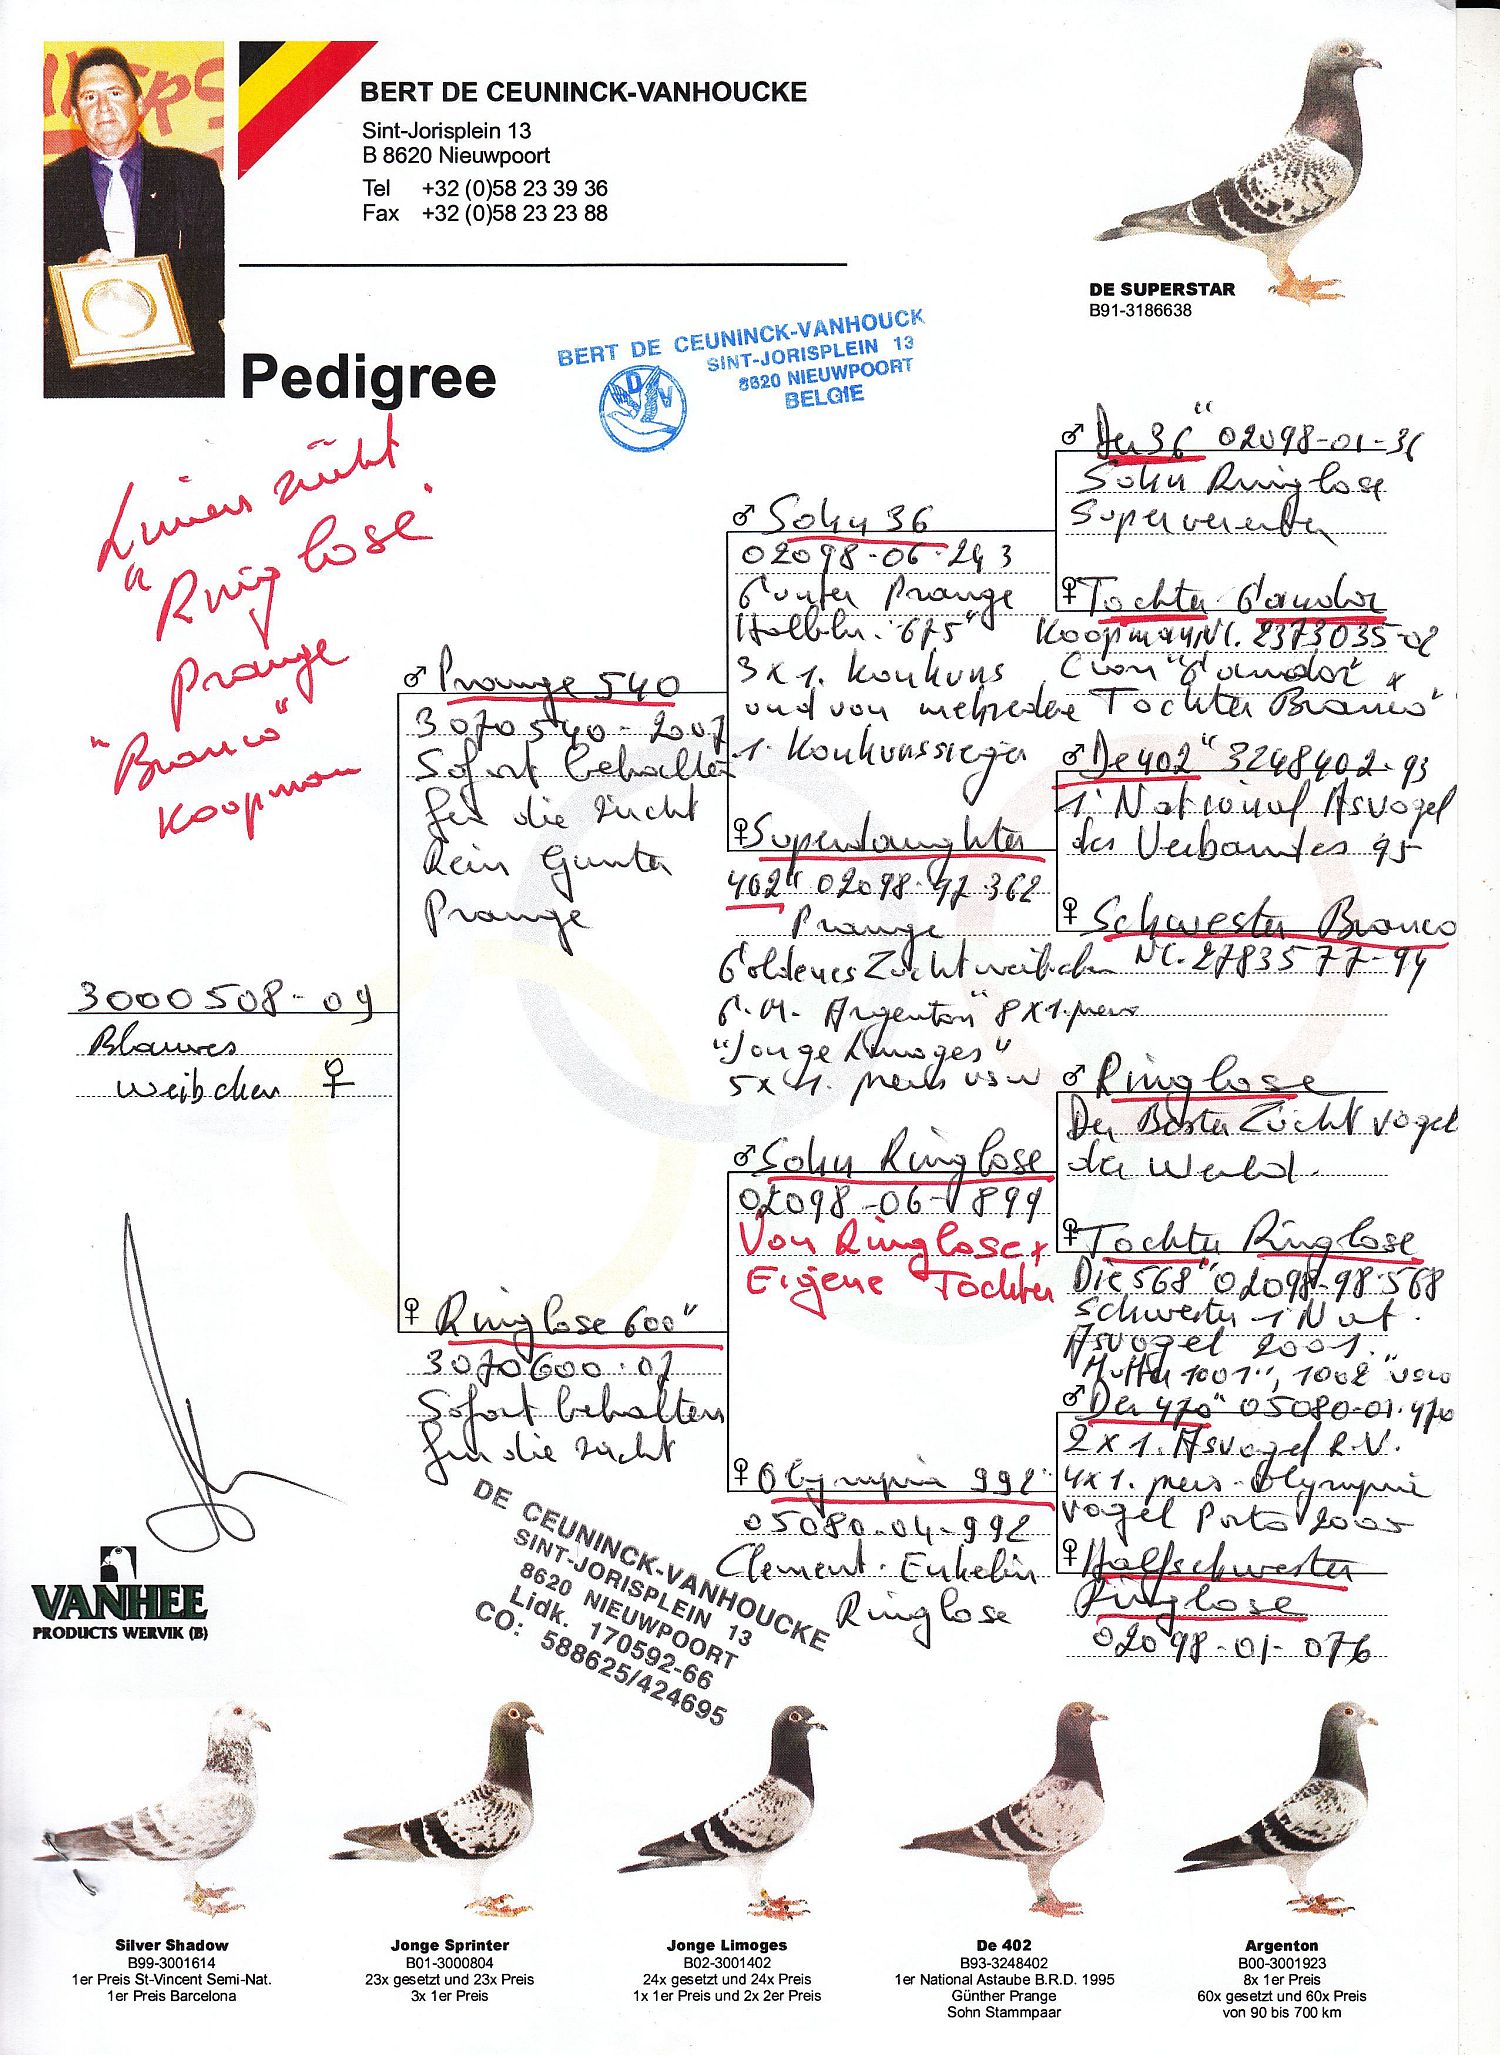 BERT DE CEUNINCK-VANHOUCKE
Sint-Jorisplein 13
B 8620 Nieuwpoort
Tel +32 (0)58 23 39 36
Fax +32 (0)58 23 23 88
DE SUPERSTAR
B91-3186638
BERT DE CEUNINCK-VANHOUCK
SINT-JORISPLEIN 13
8620 NIEUWPOORT
BELGIE
DV
Pedigree
zücht
"Ringlose"
Prange
"Branco"
Koopman
3000508-09
Blauwes
Weibchen ♀
♂ Prange 540
3070540-2007
Sofort behalten
für die zücht
Rein Gunter
Prange
♀ Ringlose 600"
3070600-07
Sofort behalten
für die zücht
♂ Sohn 36
02098-06-243
Gunter Prange
Halbbr. "675"
3x1. Konkurs
und von mehredere
1. Konkurssieger
♀ Superdaughter
402" 02098-97-362
Prange
Goldenes Zuchtweibchen
G.M. Argenton" 8x1.preis
"Jonge Limoges"
5x1. preis usw
♂ Sohn Ringlose
02098-06-899
Von Ringlose x
Eigene Tochter
♀ Olympia 992"
05080-04-992
Clement. Enkelin
Ringlose
♂ Der 36" 02098-01-36
Sohn Ringlose
Supervererber
♀ Tochter Gandor
Koopman NL. 2373035-02
(von "Gandor" x
Tochter Branco"
♂ De 402" 3248402-93
1. National Asvogel
des Verbandes 95
♀ Schwester Branco
NL. 2783577-94
♂ Ringlose
Der Beste Zücht vogel
der Wereld.
♀ Tochter Ringlose
Die 568" 02098-98-568
Schwester 1 Nat.
Asvogel 2001.
Mutter 1001", 1002" usw
♂ Der 470" 05080-01-470
2x1. Asvogel R.V.
4x1. preis - Olympia
vogel Porto 2005
♀ Halfschwester
Ringlose
02098-01-076
DE CEUNINCK-VANHOUCKE
SINT-JORISPLEIN 13
8620 NIEUWPOORT
Lidk. 170592-66
CO: 588625/424695
VANHEE
PRODUCTS WERVIK (B)
Silver Shadow
B99-3001614
1er Preis St-Vincent Semi-Nat.
1er Preis Barcelona
Jonge Sprinter
B01-3000804
23x gesetzt und 23x Preis
3x 1er Preis
Jonge Limoges
B02-3001402
24x gesetzt und 24x Preis
1x 1er Preis und 2x 2er Preis
De 402
B93-3248402
1er National Astaube B.R.D. 1995
Günther Prange
Sohn Stammpaar
Argenton
B00-3001923
8x 1er Preis
60x gesetzt und 60x Preis
von 90 bis 700 km